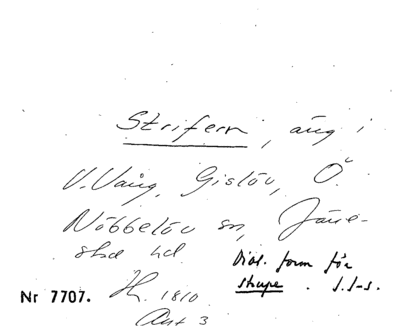 Strifern, äng i
V. Vång, Gislöv, Ö.
Nöbbelöv sn, Järre-
stad hd
Dial. form för
skupe. I.I-s.
Nr 7707. H. 1810
Avt 3